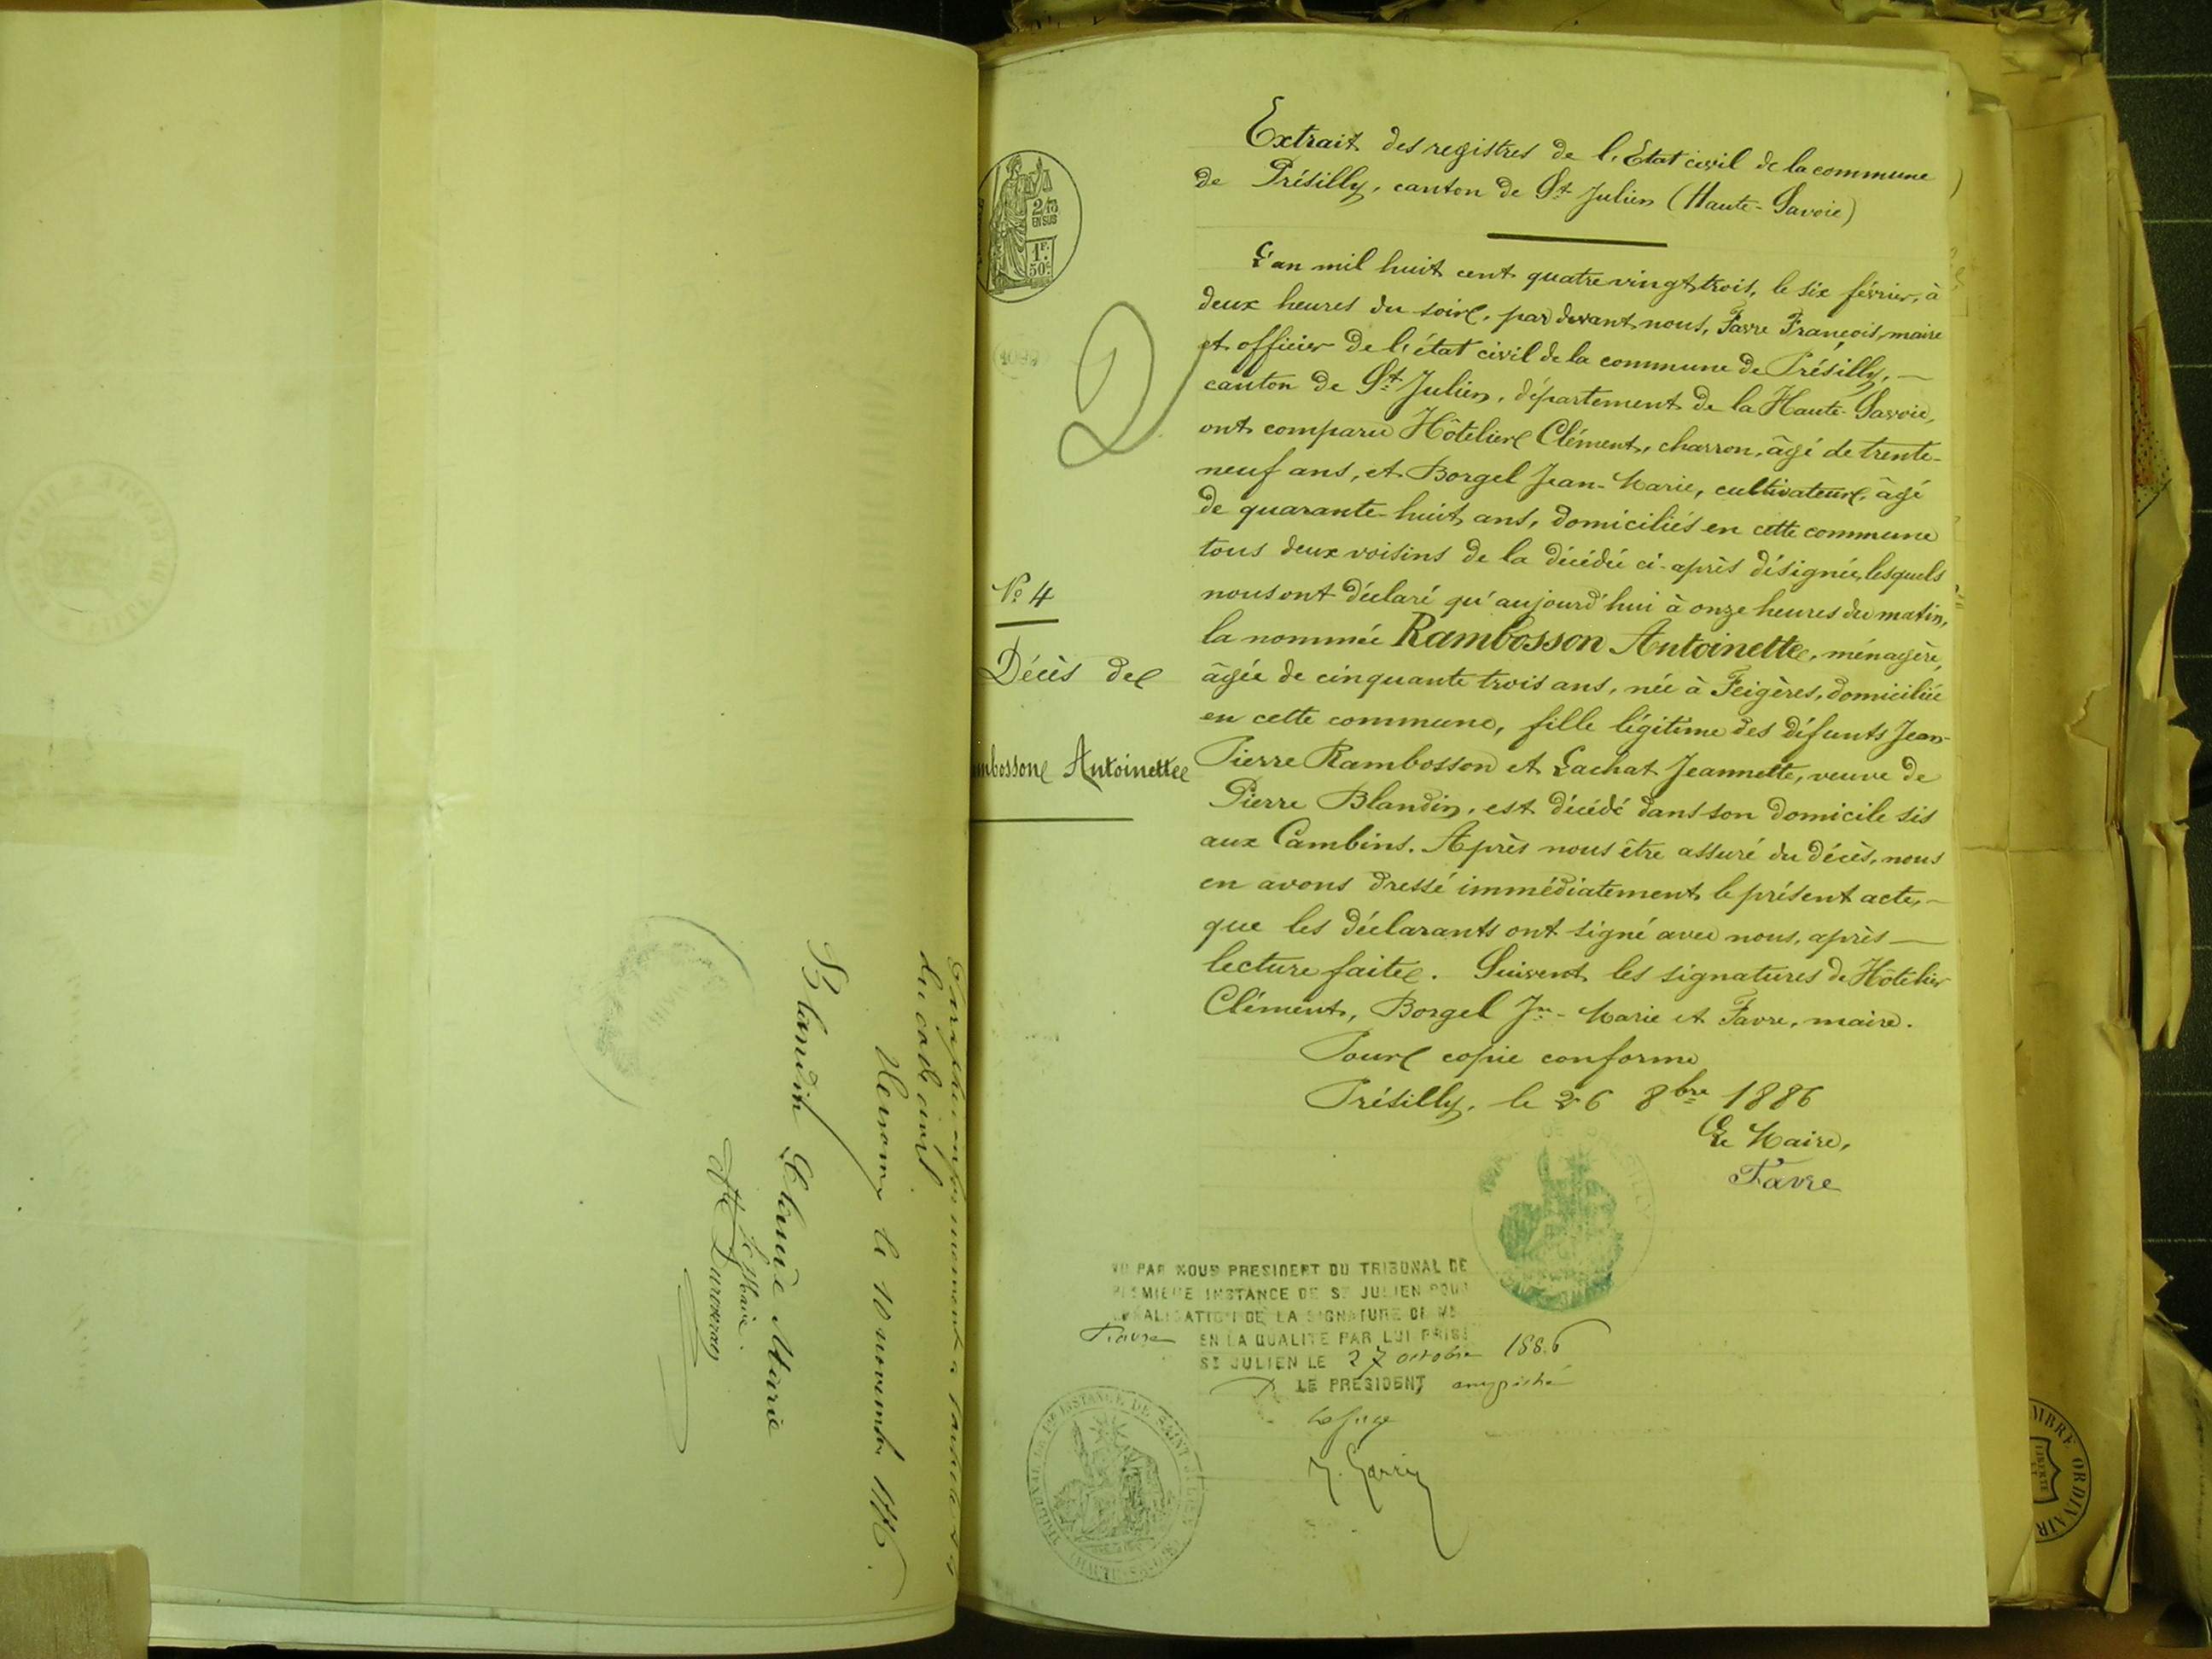 du code civil.
Versonnex le 10 novembre 1886.
Blandin Claude Marie
Le Maire.
Extrait des registres de l'Etat civil de la commune
de Présilly, canton de St Julien (Haute-Savoie)
2/10
EN SUS
1F.
50c.
L'an mil huit cent quatre vingt trois, le six février, à
deux heures du soir, par devant nous, Favre François, maire
et officier de l'état civil de la commune de Présilly, —
canton de St Julien, département de la Haute-Savoie,
ont comparu Hôtelier Clément, charron, âgé de trente-
neuf ans, et Borgel Jean-Marie, cultivateur, âgé
de quarante-huit ans, domiciliés en cette commune
tous deux voisins de la décédée ci-après désignée, lesquels
nous ont déclaré qu'aujourd'hui à onze heures du matin,
la nommée Rambosson Antoinette, ménagère,
âgée de cinquante trois ans, née à Feigères, domiciliée
en cette commune, fille légitime des défunts Jean-
Pierre Rambosson et Lachat Jeannette, veuve de
Pierre Blandin, est décédé dans son domicile sis
aux Cambins. Après nous être assuré du décès, nous
en avons dressé immédiatement le présent acte, —
que les déclarants ont signé avec nous, après —
lecture faite. Suivent les signatures de Hôtelier
Clément, Borgel Jn-Marie et Favre, maire.
Pour copie conforme
Présilly, le 26 8bre 1886
Le Maire,
Favre
No 4
Décès de
mbosson Antoinette
VU PAR NOUS PRESIDENT DU TRIBUNAL DE
PREMIERE INSTANCE DE ST JULIEN POUR
LEGALISATION DE LA SIGNATURE DE MR
Favre EN LA QUALITE PAR LUI PRISE
ST JULIEN LE 27 octobre 1886
LE PRESIDENT empêché
Le juge
TRIBUNAL DE 1RE INSTANCE DE SAINT JULIEN
(HAUTE-SAVOIE)